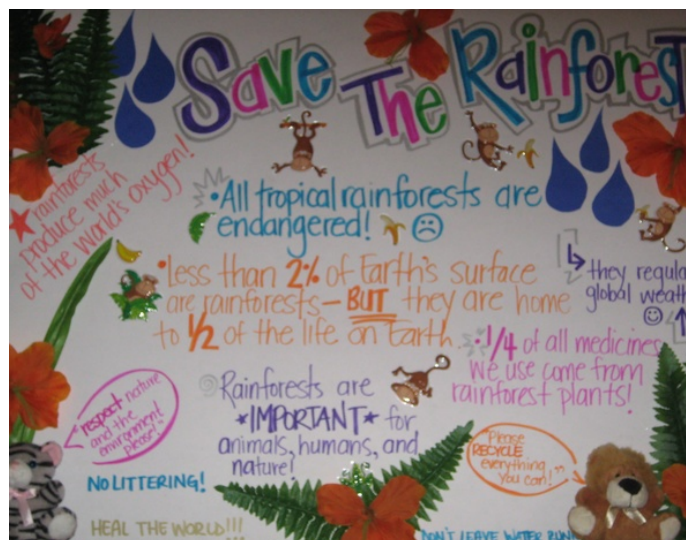 Save The Rainforest
rainforests
produce much
of the world's oxygen!
•All tropical rainforests are
endangered!
•Less than 2% of Earth's surface
are rainforests - BUT they are home
to 1/2 of the life on Earth.
they
global
•1/4 of all medicines
we use come from
rainforest plants!
Rainforests are
*IMPORTANT* for
animals, humans, and
nature!
"respect nature
and the
environment
please!"
"Please
RECYCLE
everything
you can!"
NO LITTERING!
HEAL THE WORLD!!!
DON'T LEAVE WATER